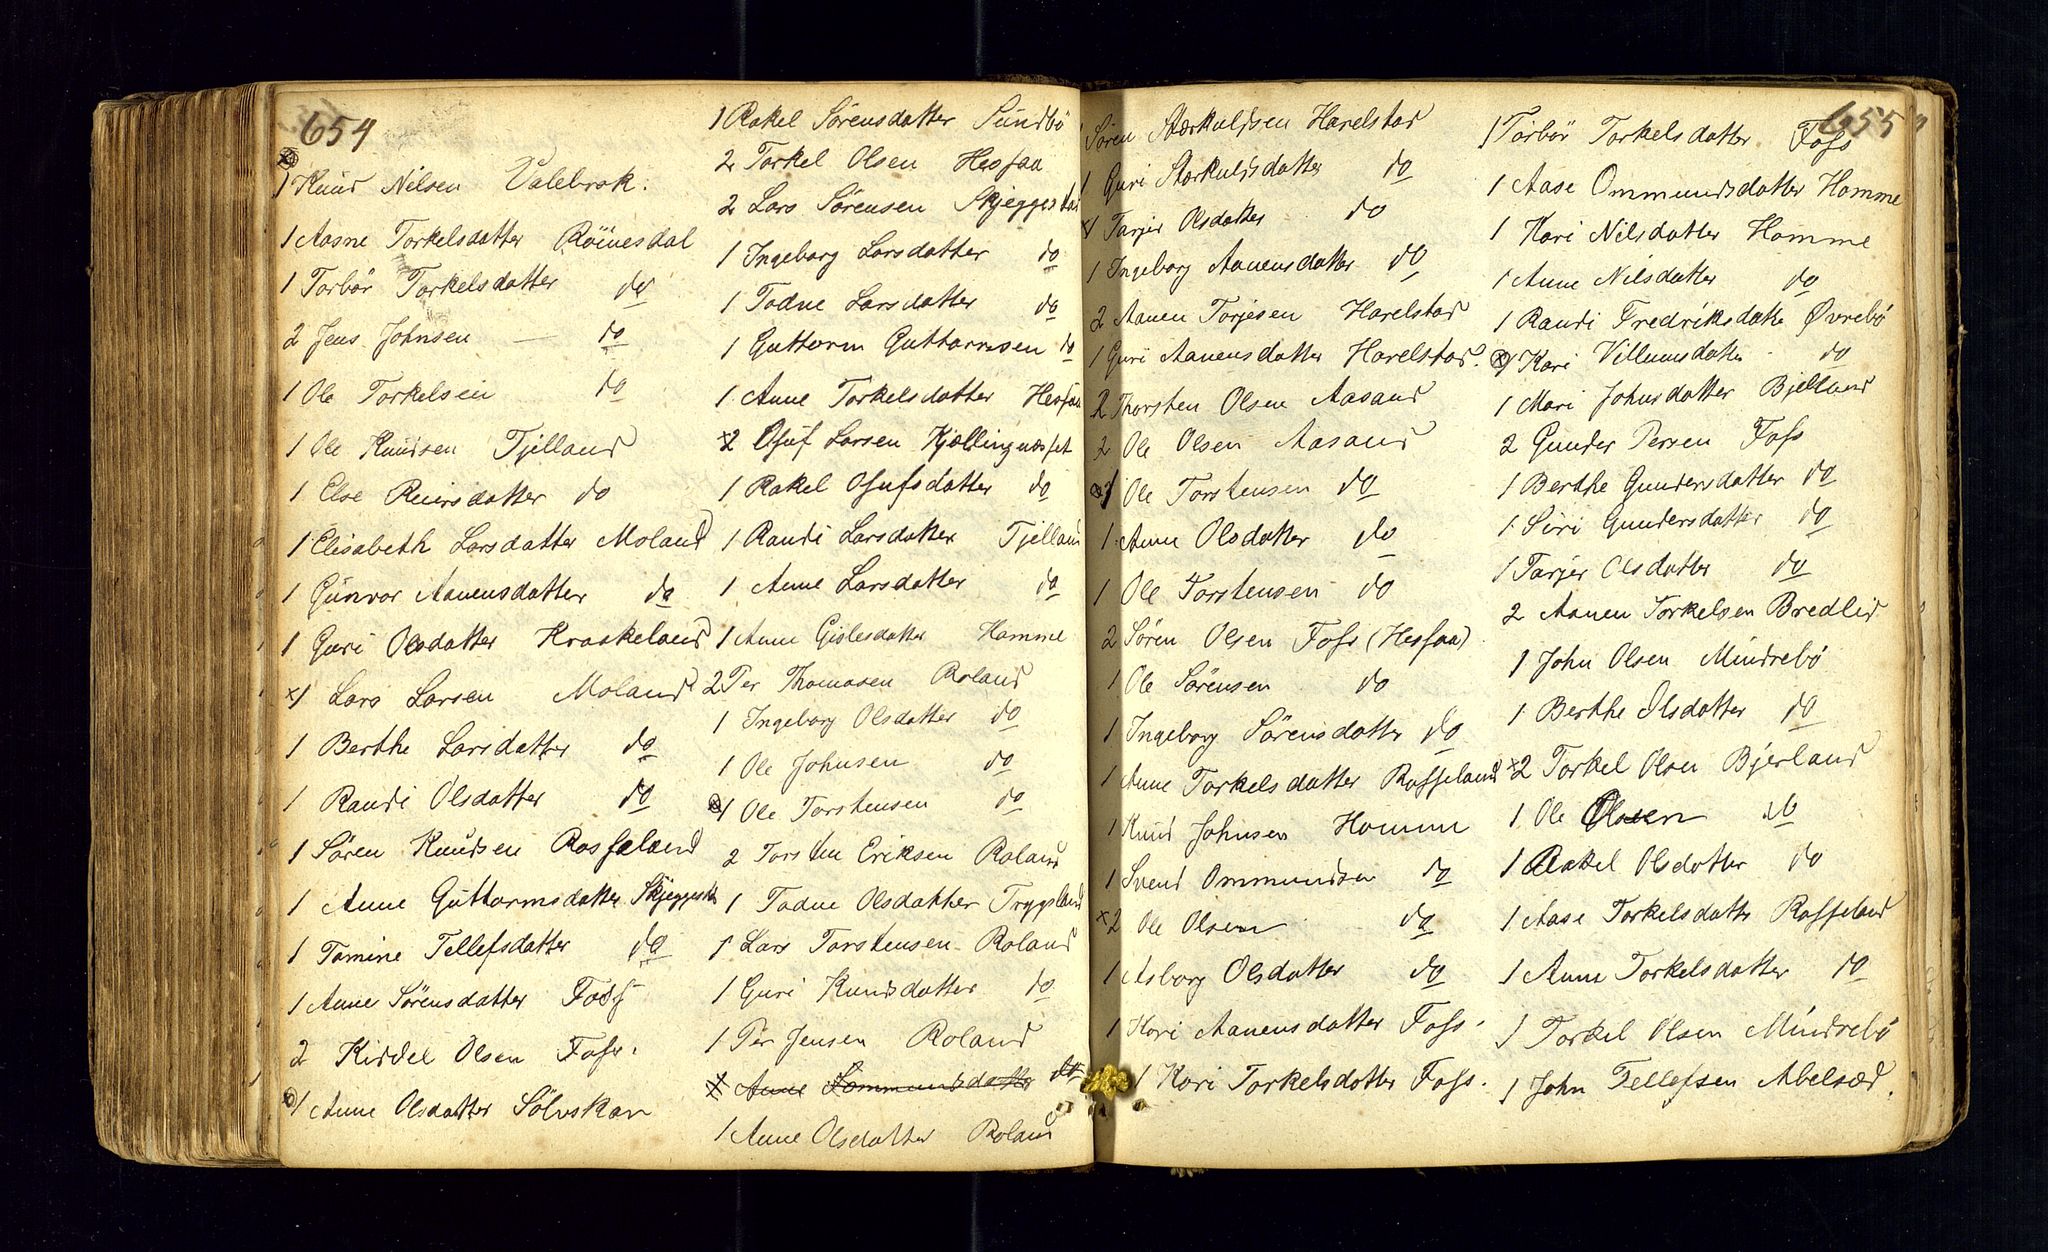 654
1 Knud Nilsen Valebrok.
1 Aasne Torkelsdatter Röinesdal
1 Torbör Torkelsdatter do
2 Jens Johnsen — do
1 Ole Torkelsen do
1 Ole Knudsen Tjelland
1 Else Reiersdatter do
1 Elisabeth Larsdatter Moland
1 Gunvor Aanensdatter do
1 Guri Olsdatter Kraakeland
x1 Lars Larsen Moland
1 Berthe Larsdatter do
1 Randi Olsdatter do
1 Sören Knudsen Rosseland
1 Anne Guttormsdatter Skjeggestad
1 Tomine Tellefsdatter do
1 Anne Sörensdatter Foss
2 Kiddel Olsen Foss.
1 Anne Olsdatter Sölvskar
1 Rakel Sörensdatter Sundbö
2 Torkel Olsen Hesfaa
2 Lars Sörensen Skjeggestad
1 Ingeborg Larsdatter do
1 Todne Larsdatter do
1 Guttorm Guttormsen do
1 Anne Torkelsdatter Hesfaa
x2 Osuf Larsen Kjællingnæsset
1 Rakel Osufsdatter do
1 Randi Larsdatter Tjelland
1 Anne Larsdatter do
1 Anne Gislesdatter Homme
2 Per Thomasen Roland
1 Ingeborg Olsdatter do
1 Ole Johnsen do
1 Ole Torstensen do
2 Torsten Eriksen Roland
1 Todne Olsdatter Trygsland
1 Lars Torstensen Roland
1 Guri Knudsdatter do
1 Per Jensen Roland
1 Anne Tommundsdatter do
1 Anne Olsdatter Roland
655
1 Sören Stærkuldsen Harelstad
1 Guri Stærkuldsdatter do
x1 Tarjer Olsdatter do
1 Ingeborg Aanensdatter do
2 Aanen Torjesen Harelstad
1 Guri Aanensdatter Harelstad.
2 Thorsten Olsen Aasand
2 Ole Olsen Aasand
1 Ole Torstensen do
1 Anne Olsdatter do
1 Ole Torstensen do
2 Sören Olsen Foss (Hesfaa)
1 Ole Sörensen do
1 Ingeborg Sörensdatter do
1 Anne Torkelsdatter Rosseland
1 Knud Johnsen Homme
1 Svend Ommundsen do
x2 Ole Olsen do
1 Asborg Olsdatter do
1 Kari Aanensdatter Foss.
1 Kari Torkelsdatter Foss.
1 Torbör Torkelsdatter Foss
1 Aase Ommundsdatter Homme
1 Kari Nilsdatter Homme
1 Anne Nilsdatter do
1 Randi Fredriksdatter Øvrebö
1 Kari Villumsdatter do
1 Mari Johnsdatter Bjelland
2 Gunder Persen Foss
1 Berthe Gundersdatter do
1 Siri Gundersdatter do
1 Tarjer Olsdatter do
2 Aanen Torkelsen Bredlid
1 John Olsen Mindrebö
1 Berthe Olsdatter do
x2 Torkel Olsen Bjerland
1 Ole Olsen do
1 Rakel Olsdatter do
1 Aase Torkelsdatter Rosseland
1 Anne Torkelsdatter do
1 Torkel Olsen Mindrebö
1 John Tellefsen Abelsæd.